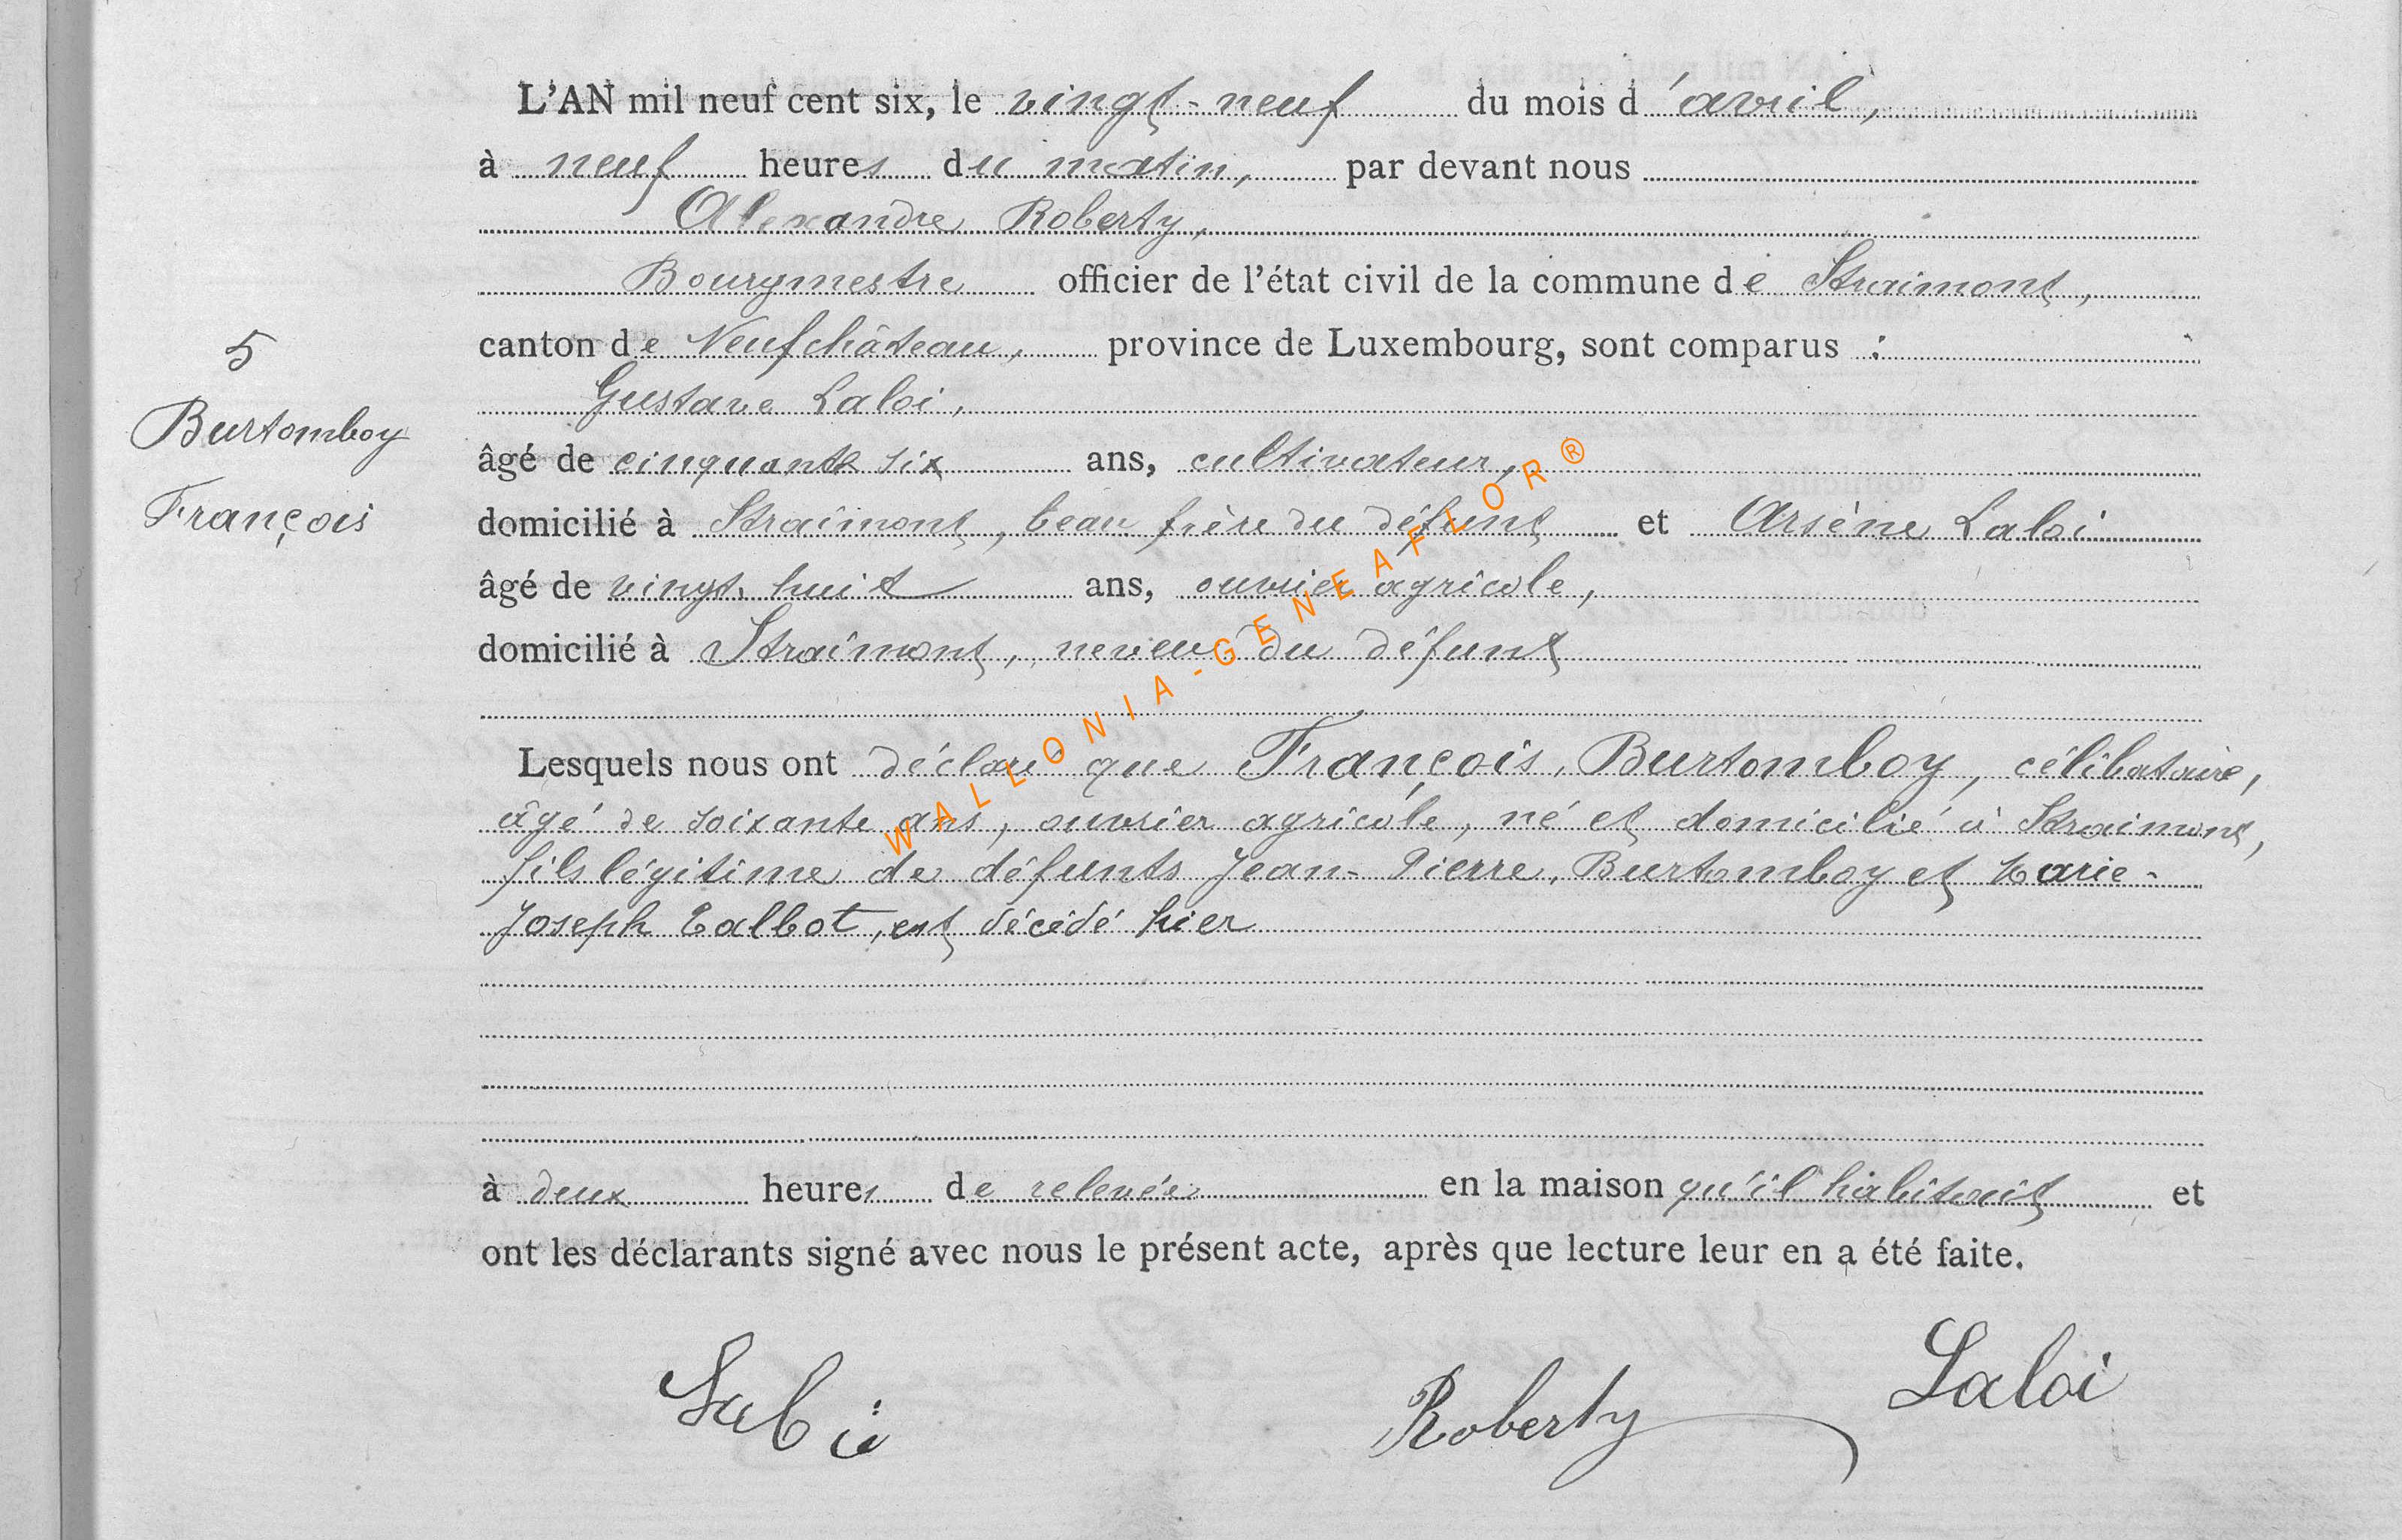 L'AN mil neuf cent six, le vingt-neuf du mois d'avril,
à neuf heures du matin, par devant nous
Alexandre Roberty,
Bourgmestre officier de l'état civil de la commune de Straimont,
5
canton de Neufchâteau, province de Luxembourg, sont comparus :
Gustave Laloi,
Burtomboy
âgé de cinquante six ans, cultivateur,
François
domicilié à Straimont, beau frère du défunt et Arsène Laloi
âgé de vingt huit ans, ouvrier agricole,
domicilié à Straimont, neveu du défunt
Lesquels nous ont déclaré que François, Burtomboy, célibataire,
âgé de soixante ans, ouvrier agricole, né et domicilié à Straimont,
fils légitime de défunts Jean-Pierre, Burtomboy et Marie-
Joseph Talbot, est décédé hier
à deux heures de relevée en la maison qu'il habitait et
ont les déclarants signé avec nous le présent acte, après que lecture leur en a été faite.
Laloi
Roberty
Laloi
WALLONIA-GENEAFLOR®